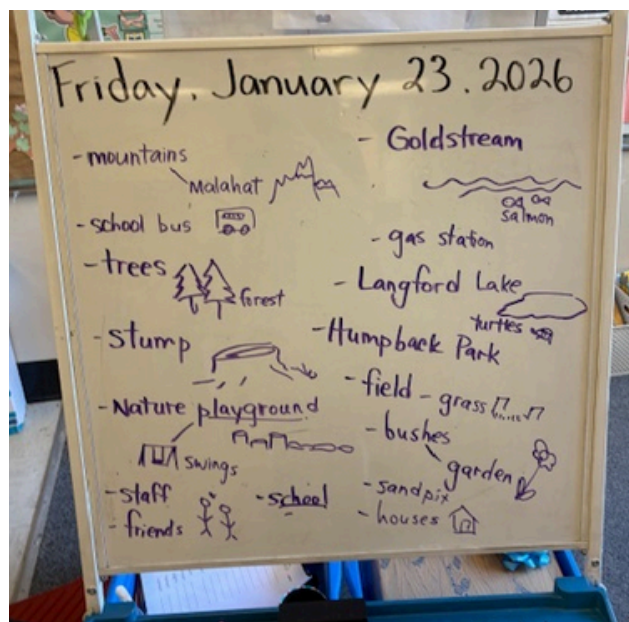 Friday, January 23.2026
- mountains
Malahat
- school bus
- trees
forest
- stump
- Nature playground
swings
- staff
- friends
- school
- Goldstream
salmon
- gas station
- Langford Lake
turtles
- Humpback Park
- field - grass
- bushes
garden
- sandpit
- houses